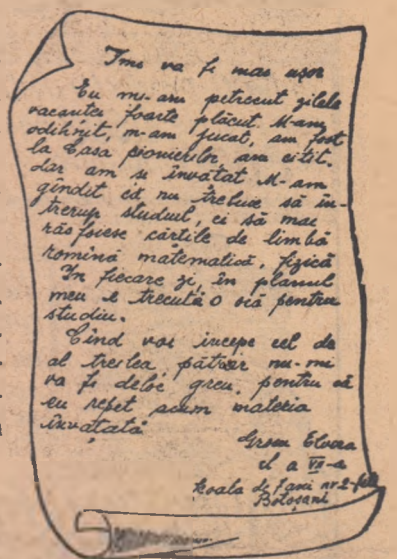 Îmi va fi mai ușor
Eu mi-am petrecut zilele
vacanței foarte plăcut. M-am
odihnit, m-am jucat, am fost
la Casa pionierilor, am citit.
dar am și învățat M-am
gîndit că nu trebuie să în-
trerup studiul, ci să mai
răsfoiesc cărțile de limbă
romînă matematică, fizică
În fiecare zi, în planul
meu e trecută o oră pentru
studiu.
Cînd voi începe cel de
al treilea pătrar nu-mi
va fi deloc greu, pentru că
eu repet acum materia
învățată
Elvira
cl a VII-a
Școala de 7 ani nr 2-fete
Botoșani